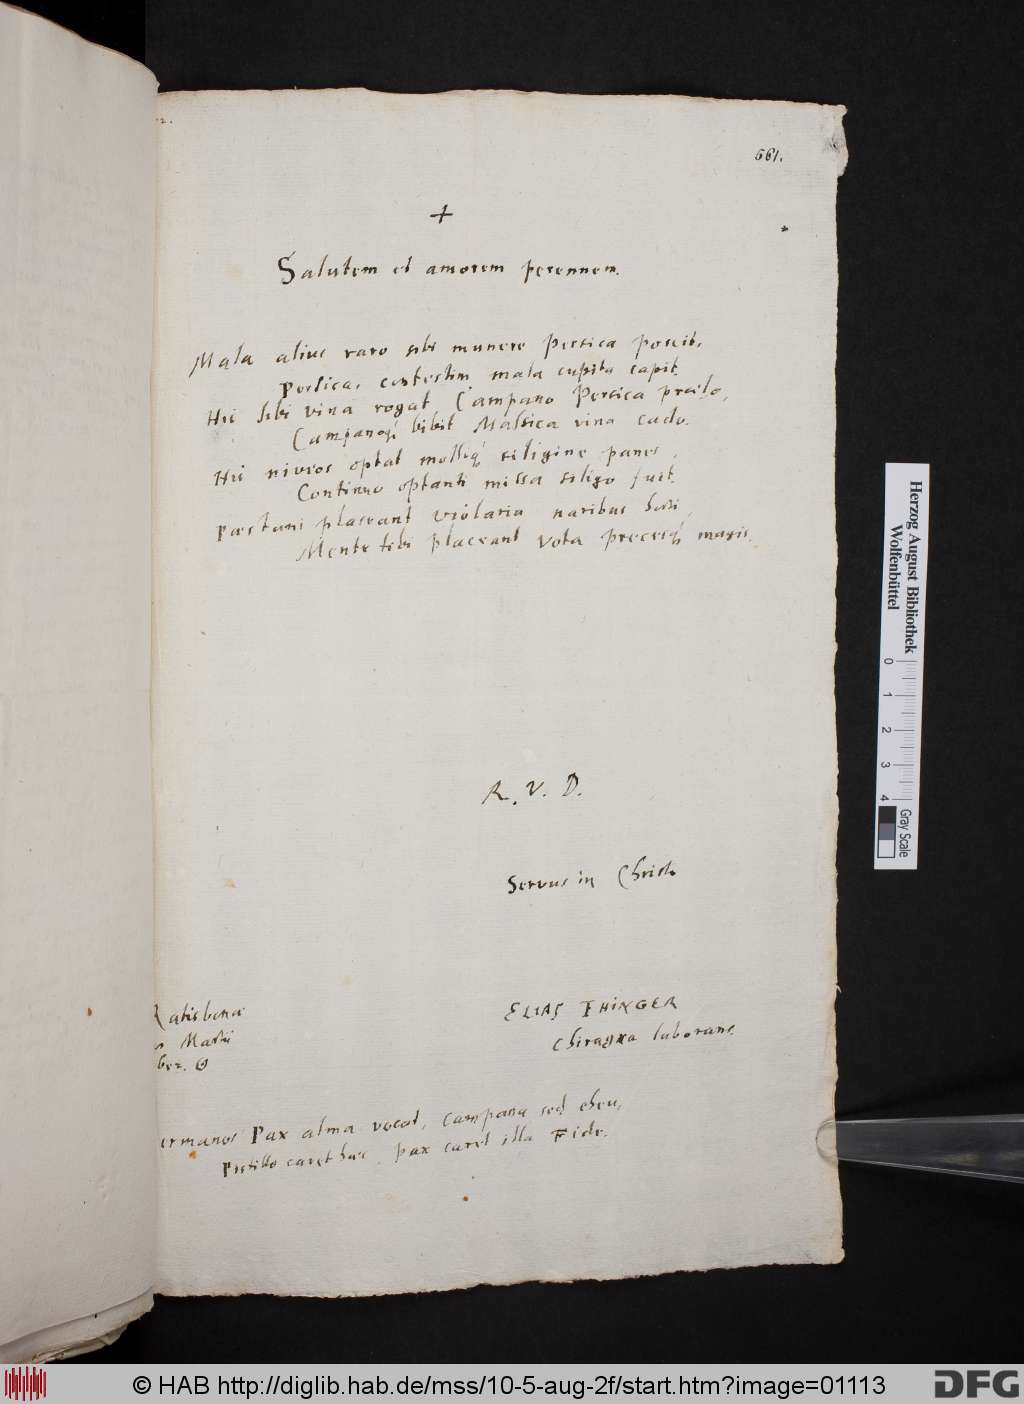 661.
+
Salutem et amorem perennem.
Mala alius raro sibi munere Persica poscit,
Persica, contestim mala cupita capit.
Hic sibi vina rogat Campano Persica prælo,
Campanoq́ bibit Massica vina cado.
Hic niveos optat molliq́ siligine panes,
Continuo optanti missa siligo fuit.
Pæstani placeant violaria naribus horti,
Mente tibi placeant vota precesq́ magis.
R. V. D.
Servus in Christo
Ratisbonæ
Martii
ELIAS EHINGER
Chiragra laborans.
ermanos Pax alma vocat, campana sed eheu,
Pistillo caret hæc, pax caret illa Fide.
Herzog August Bibliothek
Wolfenbüttel
0 1 2 3 4
Gray Scale
© HAB http://diglib.hab.de/mss/10-5-aug-2f/start.htm?image=01113
DFG